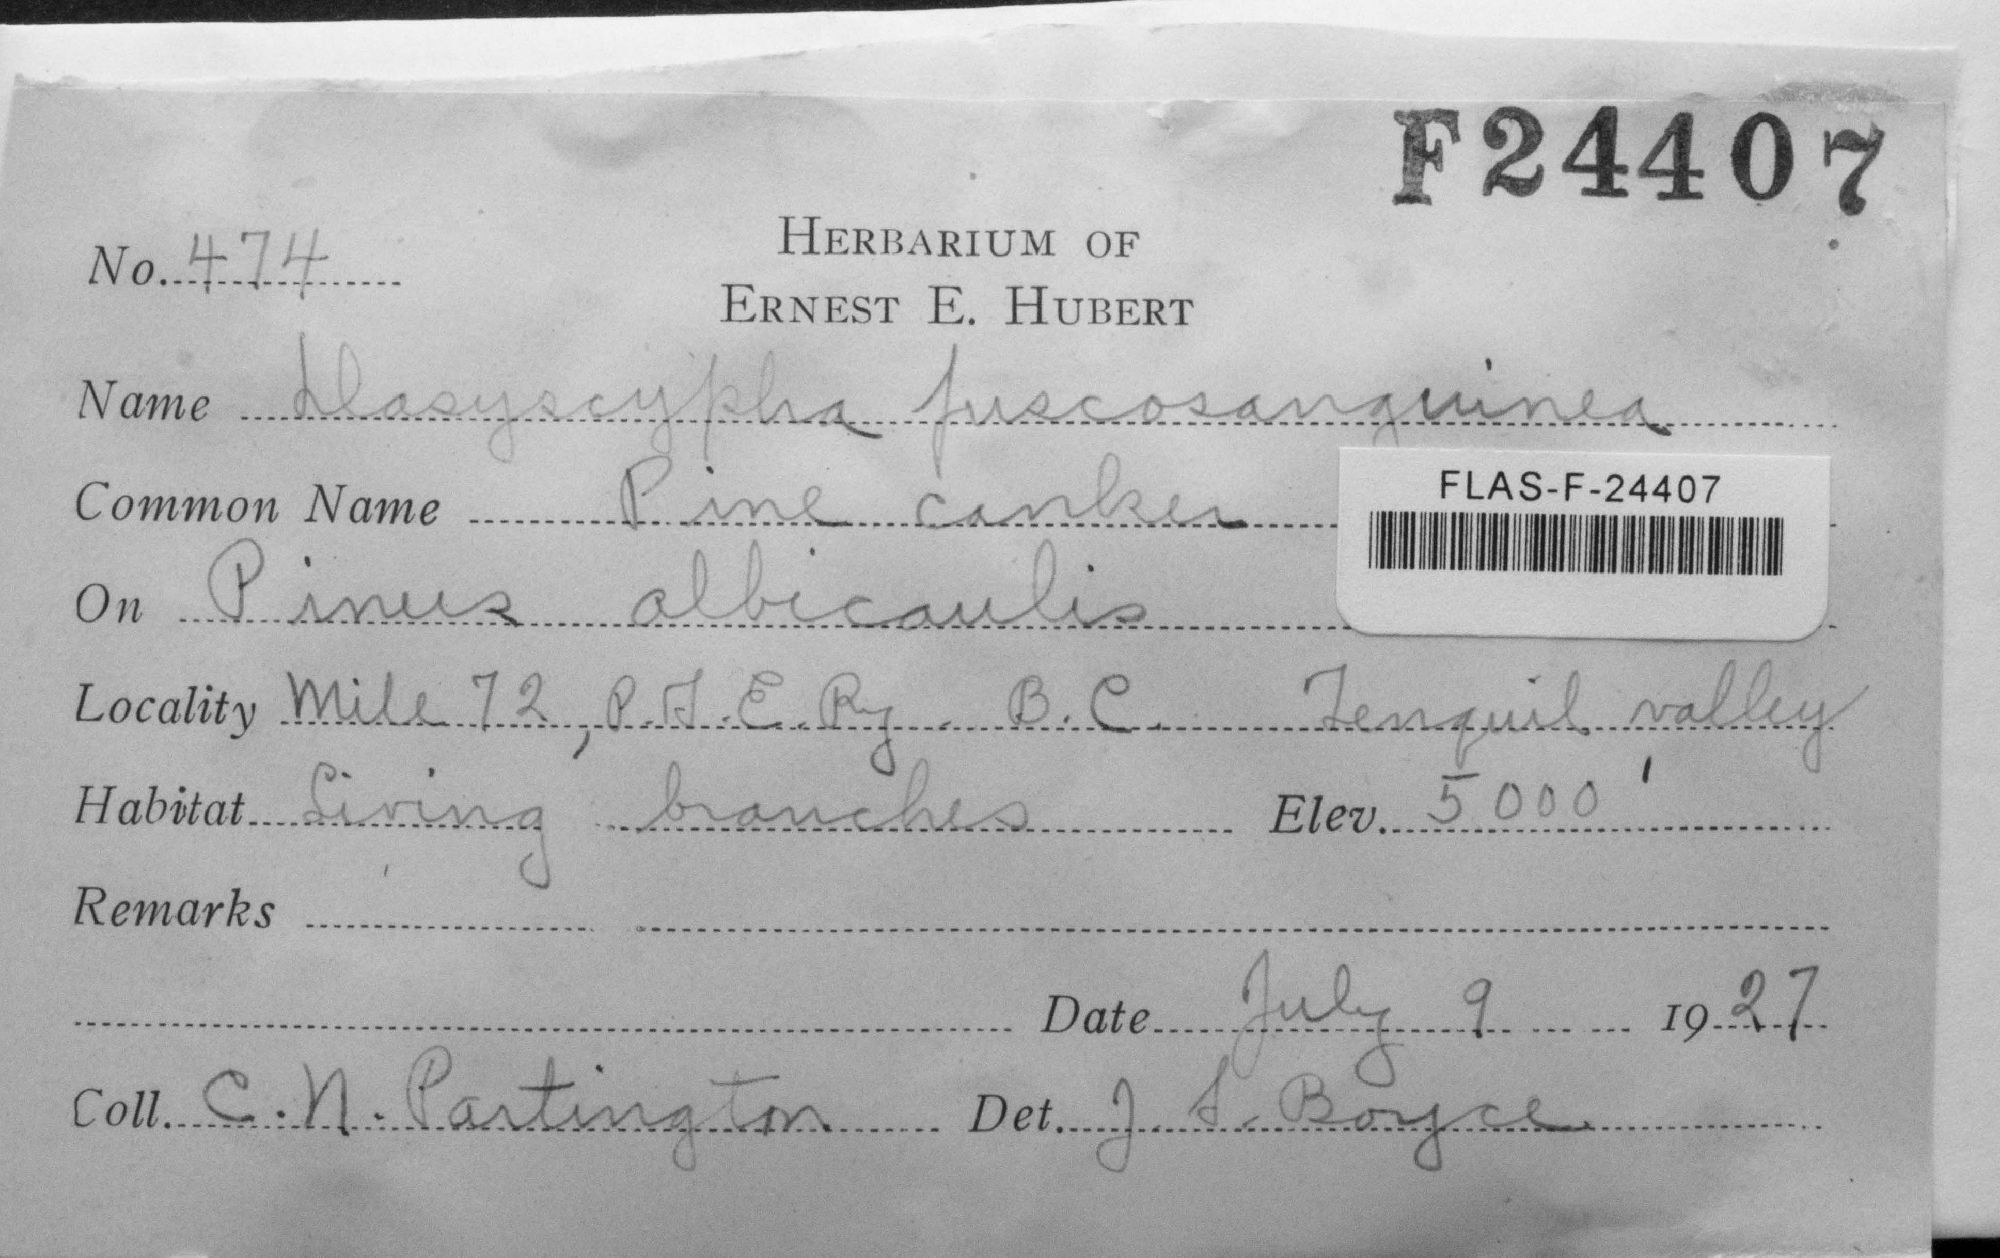 F24407
No. 474
HERBARIUM OF
ERNEST E. HUBERT
Name Dasyscypha fuscosanguinea
Common Name Pine canker
FLAS-F-24407
On Pinus albicaulis
Locality Mile 72, P.G.E. Ry. B.C. Tenquil valley
Habitat Living branches Elev. 5000'
Remarks
Date July 9 1927
Coll. C. N. Partington Det. J. S. Boyce